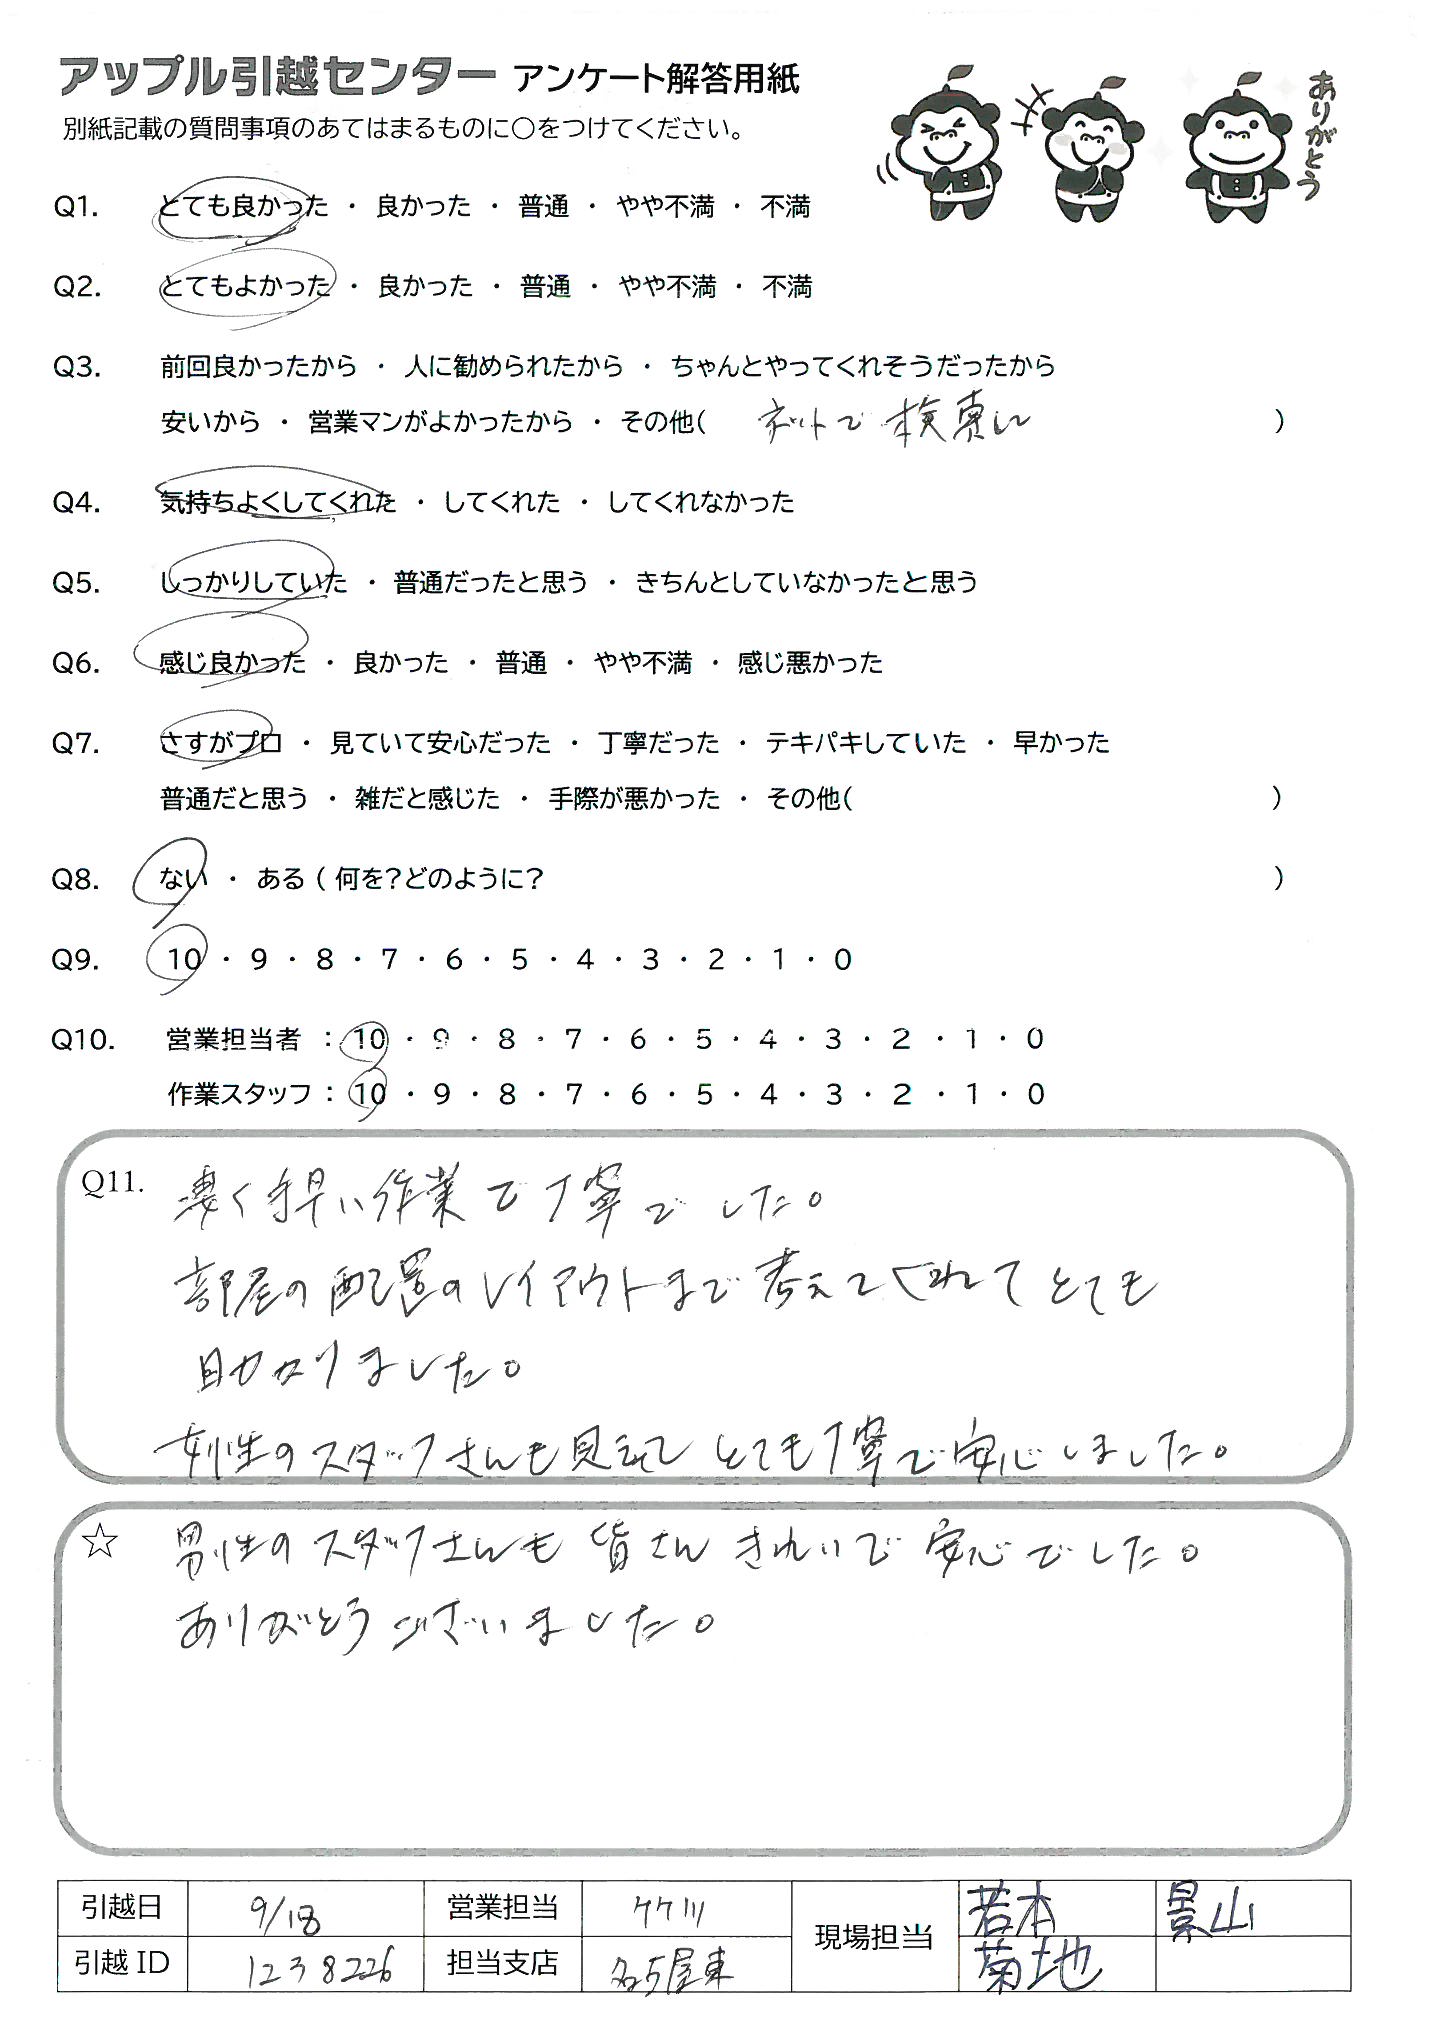 アップル引越センター アンケート解答用紙
別紙記載の質問事項のあてはまるものに○をつけてください。
ありがとう
Q1. とても良かった ・ 良かった ・ 普通 ・ やや不満 ・ 不満
Q2. とてもよかった ・ 良かった ・ 普通 ・ やや不満 ・ 不満
Q3. 前回良かったから ・ 人に勧められたから ・ ちゃんとやってくれそうだったから
安いから ・ 営業マンがよかったから ・ その他( ネットで検索して )
Q4. 気持ちよくしてくれた ・ してくれた ・ してくれなかった
Q5. しっかりしていた ・ 普通だったと思う ・ きちんとしていなかったと思う
Q6. 感じ良かった ・ 良かった ・ 普通 ・ やや不満 ・ 感じ悪かった
Q7. さすがプロ ・ 見ていて安心だった ・ 丁寧だった ・ テキパキしていた ・ 早かった
普通だと思う ・ 雑だと感じた ・ 手際が悪かった ・ その他( )
Q8. ない ・ ある ( 何を?どのように? )
Q9. 10 ・ 9 ・ 8 ・ 7 ・ 6 ・ 5 ・ 4 ・ 3 ・ 2 ・ 1 ・ 0
Q10. 営業担当者 : 10 ・ 9 ・ 8 ・ 7 ・ 6 ・ 5 ・ 4 ・ 3 ・ 2 ・ 1 ・ 0
作業スタッフ : 10 ・ 9 ・ 8 ・ 7 ・ 6 ・ 5 ・ 4 ・ 3 ・ 2 ・ 1 ・ 0
Q11. 凄く手早い作業で丁寧でした。
部屋の配置のレイアウトまで考えてくれてとても
助かりました。
女性のスタッフさんも見えて とても丁寧で安心しました。
☆ 男性のスタッフさんも皆さんきれいで安心でした。
ありがとうございました。
引越日 9/18 営業担当 竹川 現場担当 若本 景山
引越ID 1238226 担当支店 名古屋東 菊地